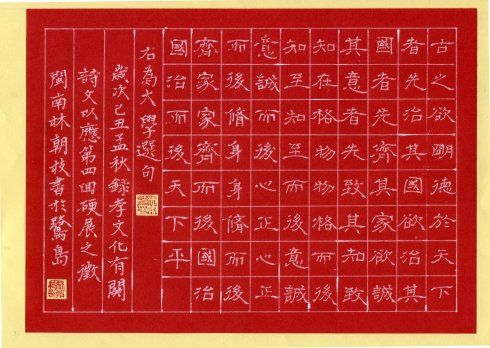 古之欲明德於天下
者先治其國欲治其
國者先齊其家欲誠
其意者先致其知致
知在格物物格而後
知至知至而後意誠
意誠而後心正心正
而後脩身身脩而後
齊家家齊而後國治
國治而後天下平
右為大學選句
歲次己丑孟秋録孝文化有關
詩文以應第四回硬展之徵
閩南林朝枝書於鷺島